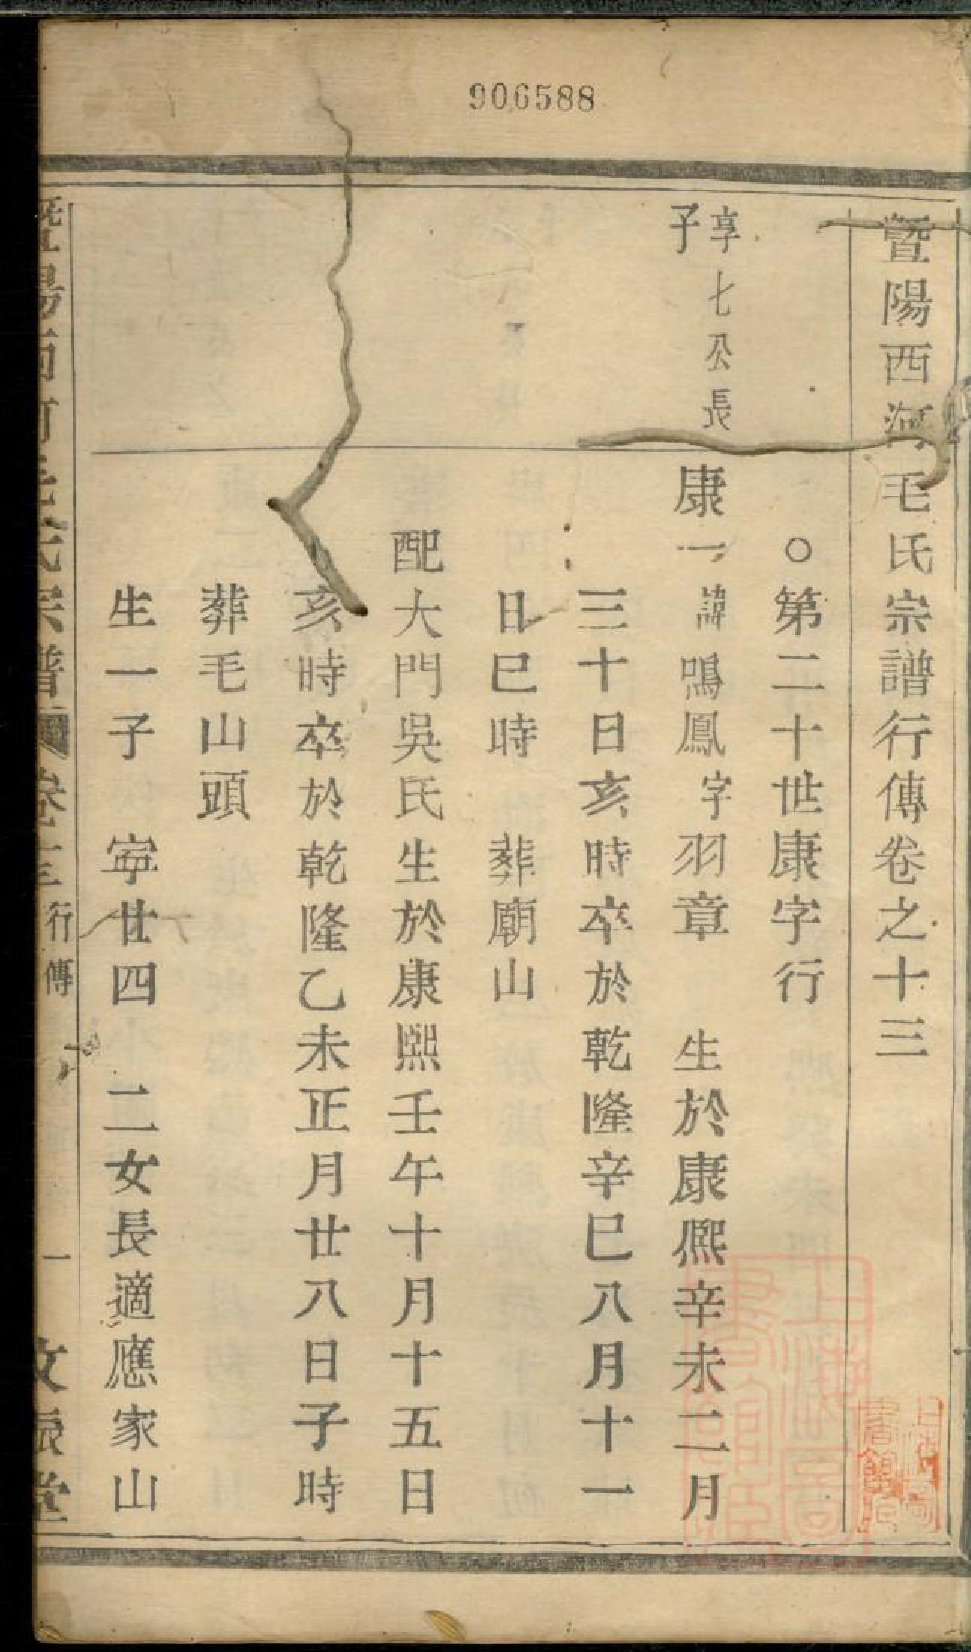 906588
暨陽西河毛氏宗譜行傳卷之十三
○第二十世康字行
享七公長
子
康一諱鳴鳳字羽章 生於康熈辛未二月
三十日亥時卒於乾隆辛巳八月十一
日巳時 葬廟山
配大門吳氏生於康熈壬午十月十五日
亥時卒於乾隆乙未正月廿八日子時
葬毛山頭
生一子 寕廿四 二女長適應家山
暨陽西河毛氏宗譜 卷十三 行傳 一 文振堂